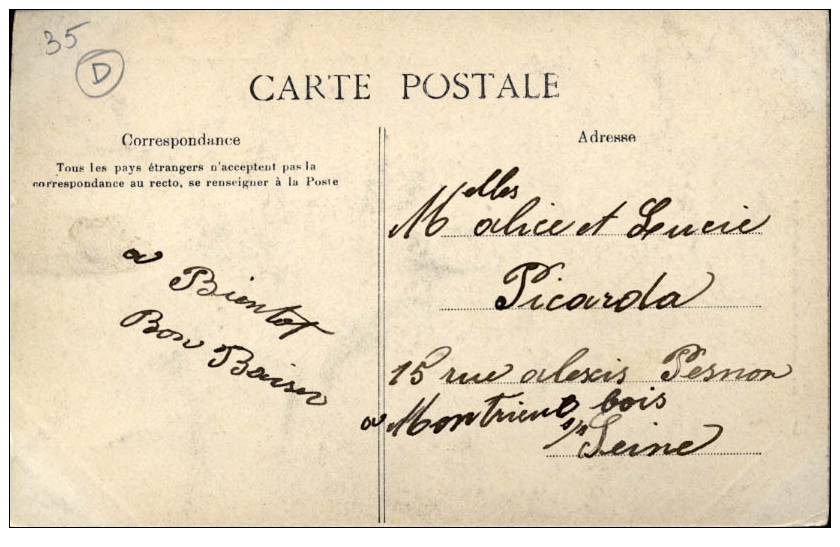 35
D
CARTE POSTALE
Correspondance
Tous les pays étrangers n'acceptent pas la
correspondance au recto, se renseigner à la Poste
a Bientot
Bon Baiser
Adresse
Melles alice et Lucie
Picarda
15 rue alexis Pesnon
a Montrieuo bois
s/s Seine